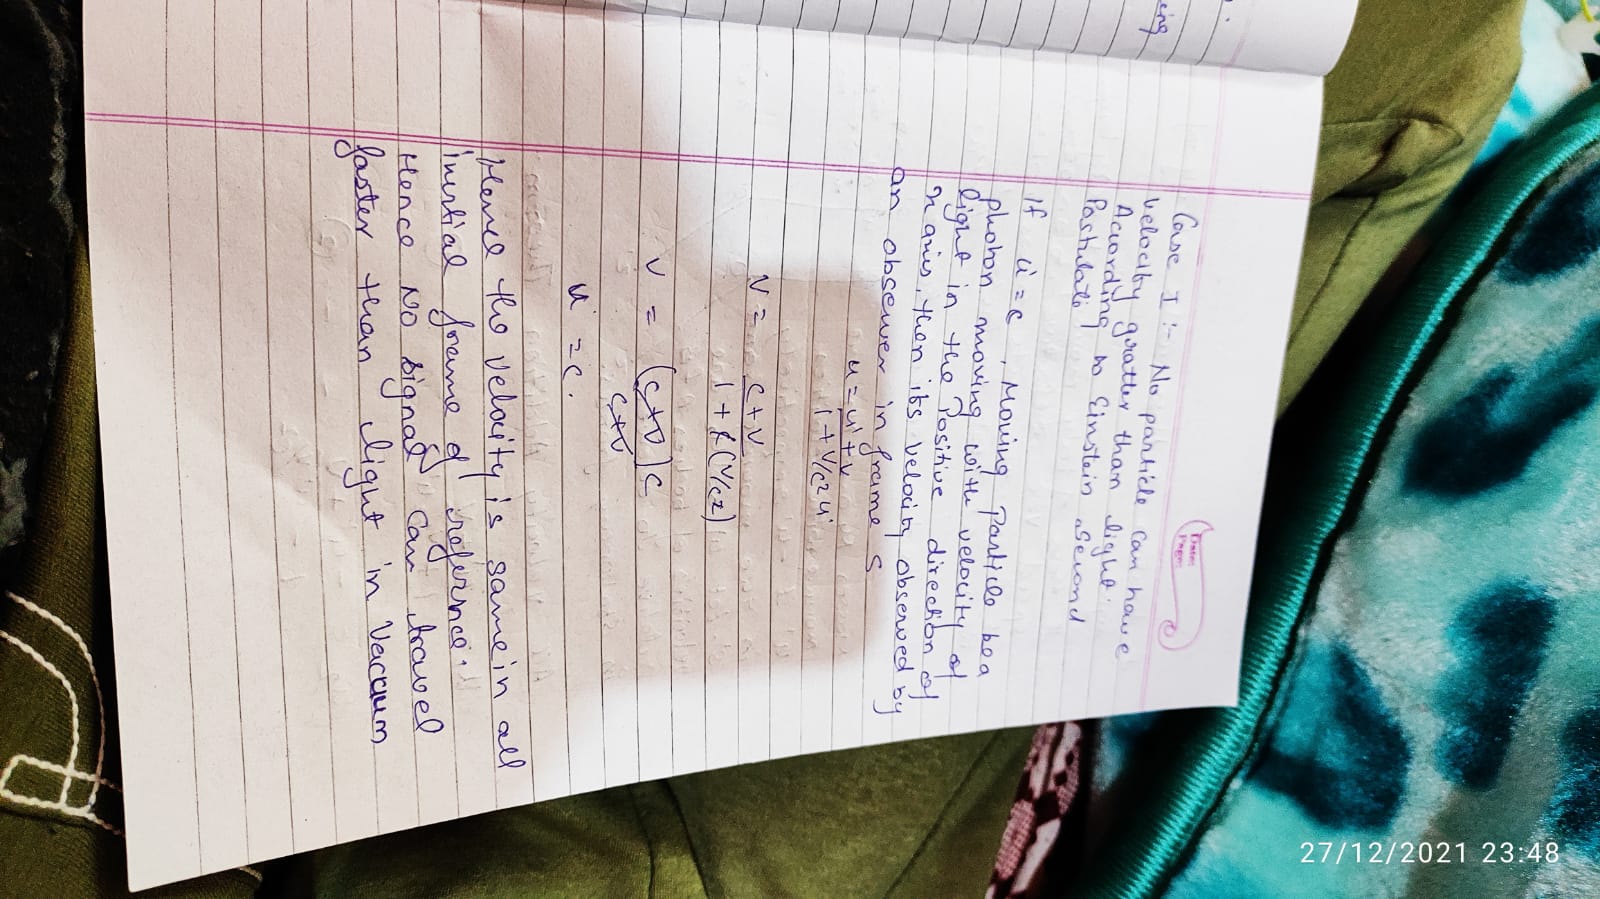 Date:
Page:
Case I :- No particle can have
velocity gratter than light.
According to Einstein second
Pastulate
If u'=c, Moving Particle be a
photon moving with velocity of
light in the Positive direction of
x axis, then its velocity observed by
an observer in frame S
u = u'+v
1+v/c2 u'
V = c+v
1+c(v/c2)
V = (c+v)c
c+v
u = c.
Hence the velocity is same in all
inertial frame of refernce.
Hence No signal can travel
faster than light in Vaccum
27/12/2021 23:48